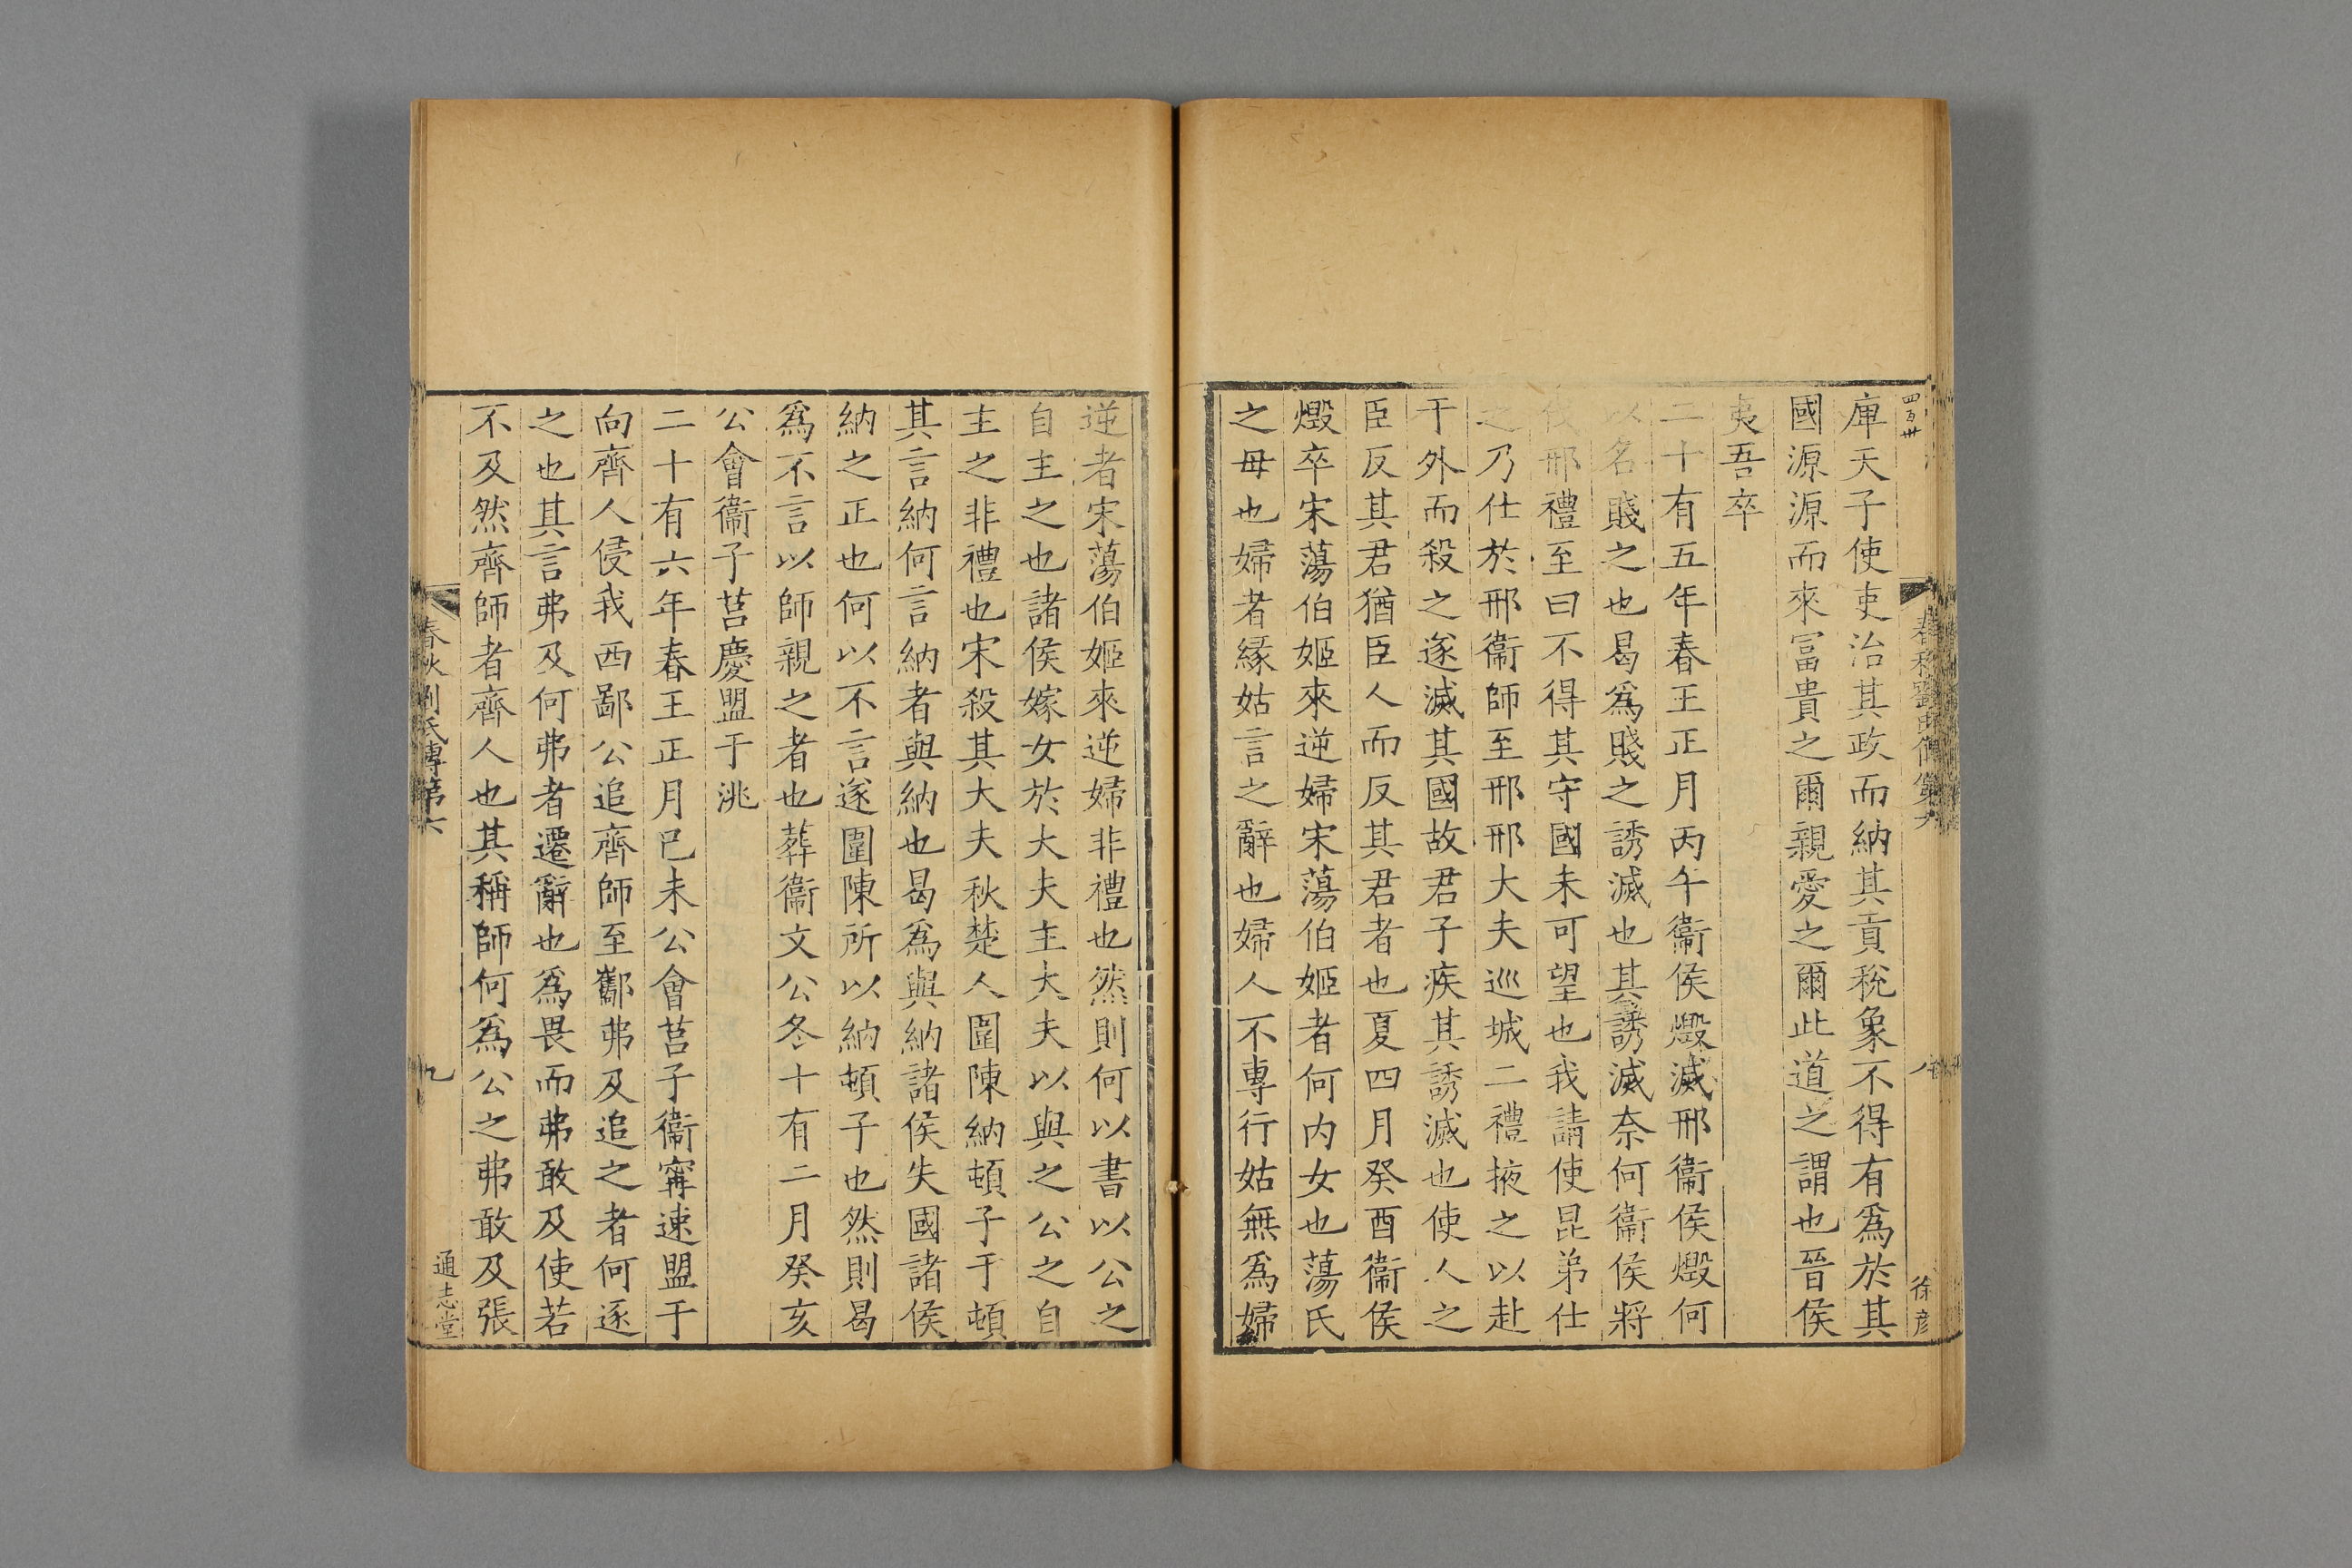 四百卅
庳天子使吏治其政而納其貢稅象不得有爲於其
國源源而來冨貴之爾親愛之爾此道之謂也晉侯
夷吾卒
二十有五年春王正月丙午衞侯燬滅邢衞侯燬何
以名賤之也曷爲賤之誘滅也其誘滅奈何衞侯將
伐邢禮至曰不得其守國未可望也我請使昆弟仕
之乃仕於邢衞師至邢邢大夫巡城二禮掖之以赴
于外而殺之遂滅其國故君子疾其誘滅也使人之
臣反其君猶臣人而反其君者也夏四月癸酉衞侯
燬卒宋蕩伯姬來逆婦宋蕩伯姬者何内女也蕩氏
之母也婦者縁姑言之辭也婦人不專行姑無爲婦
春秋劉氏傳第六
八
徐彦
逆者宋蕩伯姬來逆婦非禮也然則何以書以公之
自主之也諸侯嫁女於大夫主大夫以與之公之自
主之非禮也宋殺其大夫秋楚人圍陳納頓子于頓
其言納何言納者與納也曷爲與納諸侯失國諸侯
納之正也何以不言遂圍陳所以納頓子也然則曷
爲不言以師親之者也葬衞文公冬十有二月癸亥
公會衞子莒慶盟于洮
二十有六年春王正月已未公會莒子衞甯速盟于
向齊人侵我西鄙公追齊師至酅弗及追之者何逐
之也其言弗及何弗者遷辭也爲畏而弗敢及使若
不及然齊師者齊人也其稱師何爲公之弗敢及張
春秋劉氏傳第六
九
通志堂